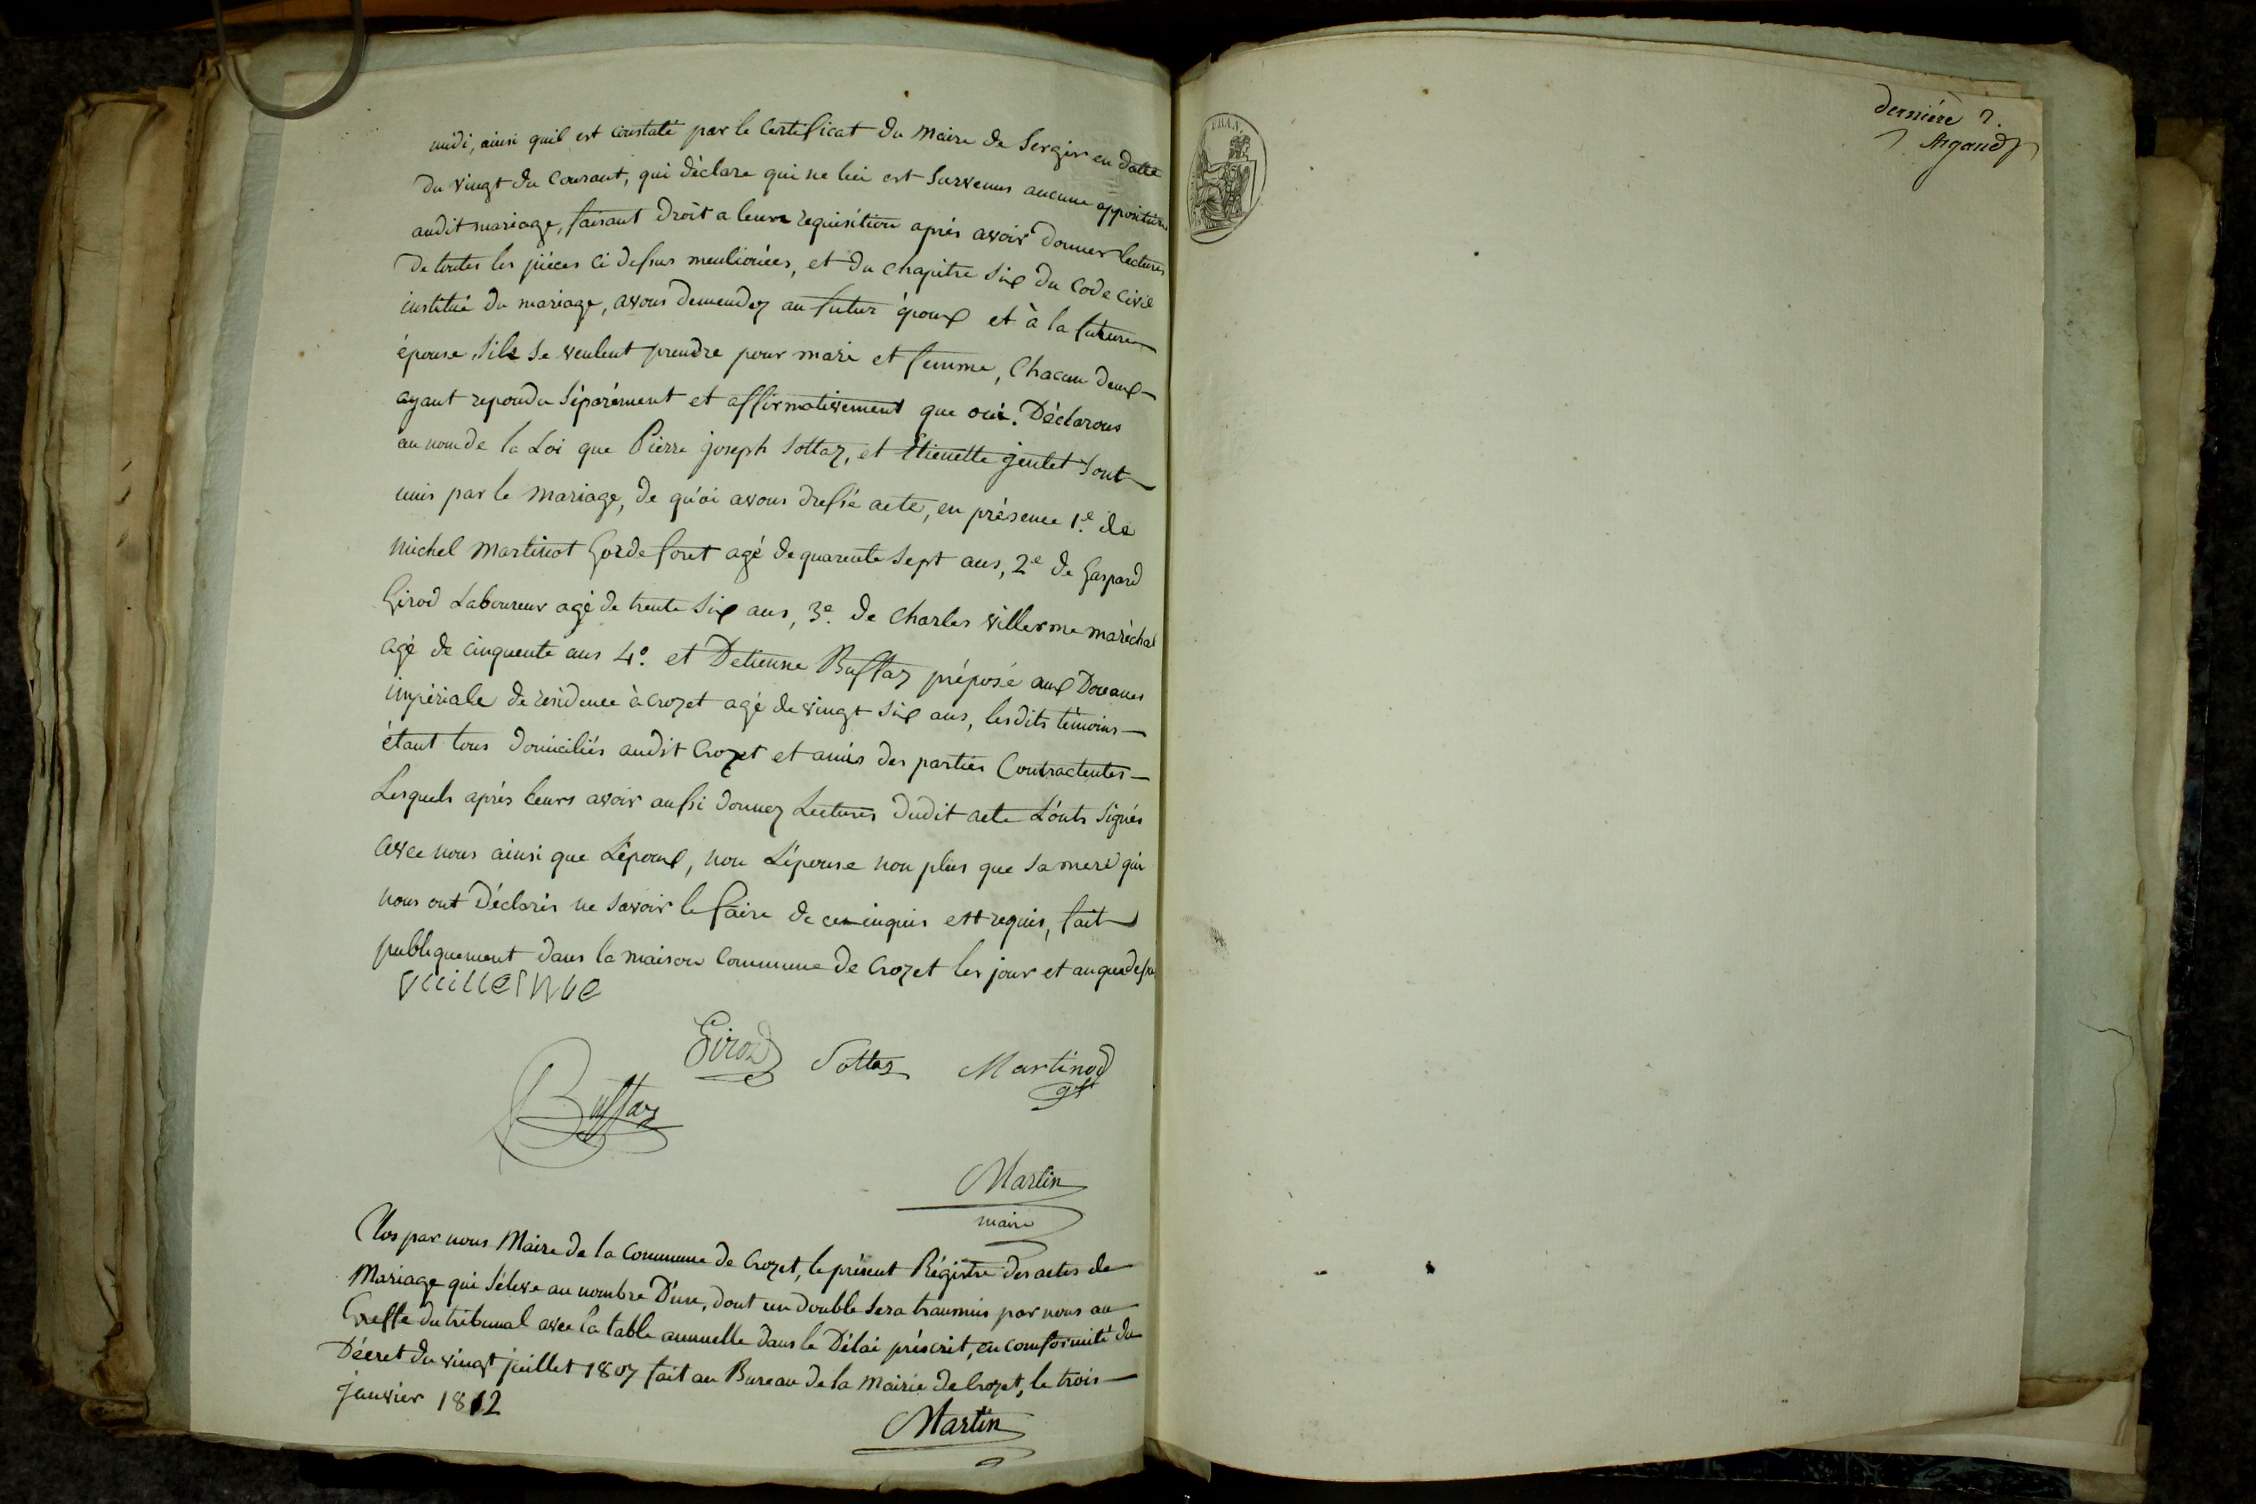 midi, ainsi quil est constaté par le Certificat du Maire de Sergier en datte
du vingt du Courant, qui déclare qui ne lui est Survenus aucune opposition
audit mariage, faisant droit a leur requisition après avoir donner lectures
De toutes les pièces ci dessus mentionées, et du chapitre Six du Code Civil
institué du mariage, avons demendez au futur époux et à la future
épouse, Sils Se veulent prendre pour mari et femme, Chacun deux
ayant repondu Séparément et affirmativement que oui. Déclarons
au nom de la Loi que Pierre joseph Sottaz, et Etienette gentet Sont
unis par le Mariage, de quoi avons dressé acte, en présence 1.e de
Michel Martinot Gorde foret agé de quarente Sept ans, 2e de Gaspard
Girod Laboureur agé de trente Six ans, 3.e de Charles villerme maréchal
agé de cinquente ans 4.o et Detienne Buffaz préposé aux Douanes
impériale de résidence à Crozet agé de vingt Six ans, lesdits témoins
étant tous domiciliés audit Crozet et amis des parties Contractentes
Lesquels après leurs avoir aussi donnez Lectures dudit acte L'onts Signés
avec nous ainsi que L'époux, non L'épouse non plus que Sa mere qui
nous ont Déclarés ne Savoir le faire de ce enquis et requis, fait
publiquement dans la maison Commune de Crozet les jour et an que dessu
vuillerme
Girod Sottaz Martinod
gf
Buffaz
Martin
maire
Clos par nous Maire de la Commune de Crozet, le présent Régistre des actes de
Mariage qui S'éleve au nombre D'un, dont un double Sera transmis par nous au
Greffe du tribunal avec la table annuelle dans le Délai préscrit, en conformité du
Décret du vingt juillet 1807 fait au Bureau de la Mairie de Crozet, le trois
janvier 1812
Martin
dernière
Argaud
FRAN.